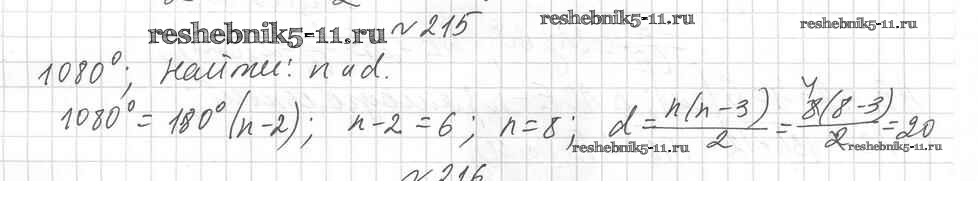 reshebnik5-11.ru №215 reshebnik5-11.ru reshebnik5-11.ru
1080°; Найти: n и d.
1080° = 180°(n-2); n-2=6; n=8; d = n(n-3)/2 = 4 8(8-3)/2 = 20
reshebnik5-11.ru reshebnik5-11.ru
№216